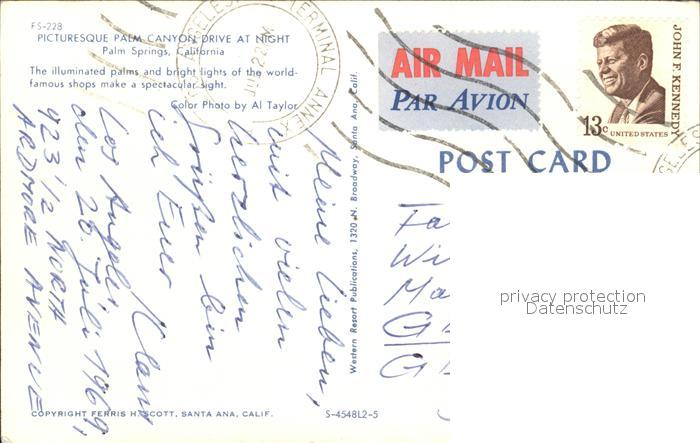 FS-228
PICTURESQUE PALM CANYON DRIVE AT NIGHT
Palm Springs, California
The illuminated palms and bright lights of the world-
famous shops make a spectacular sight.
Color Photo by Al Taylor
TERMINAL ANNEX
AIR MAIL
PAR AVION
JOHN F. KENNEDY
13c UNITED STATES
POST CARD
Meine Lieben,
mit vielen
herzlichen
Grüßen bin
ich Euer
Los Angeles
den 26. Juli 1969,
923 1/2 NORTH
ARDMORE AVENUE
Western Resort Publications, 1320 N. Broadway, Santa Ana, Calif.
Fa
Wi
Ma
privacy protection
Datenschutz
COPYRIGHT FERRIS H. SCOTT, SANTA ANA, CALIF.
S-4548L2-5